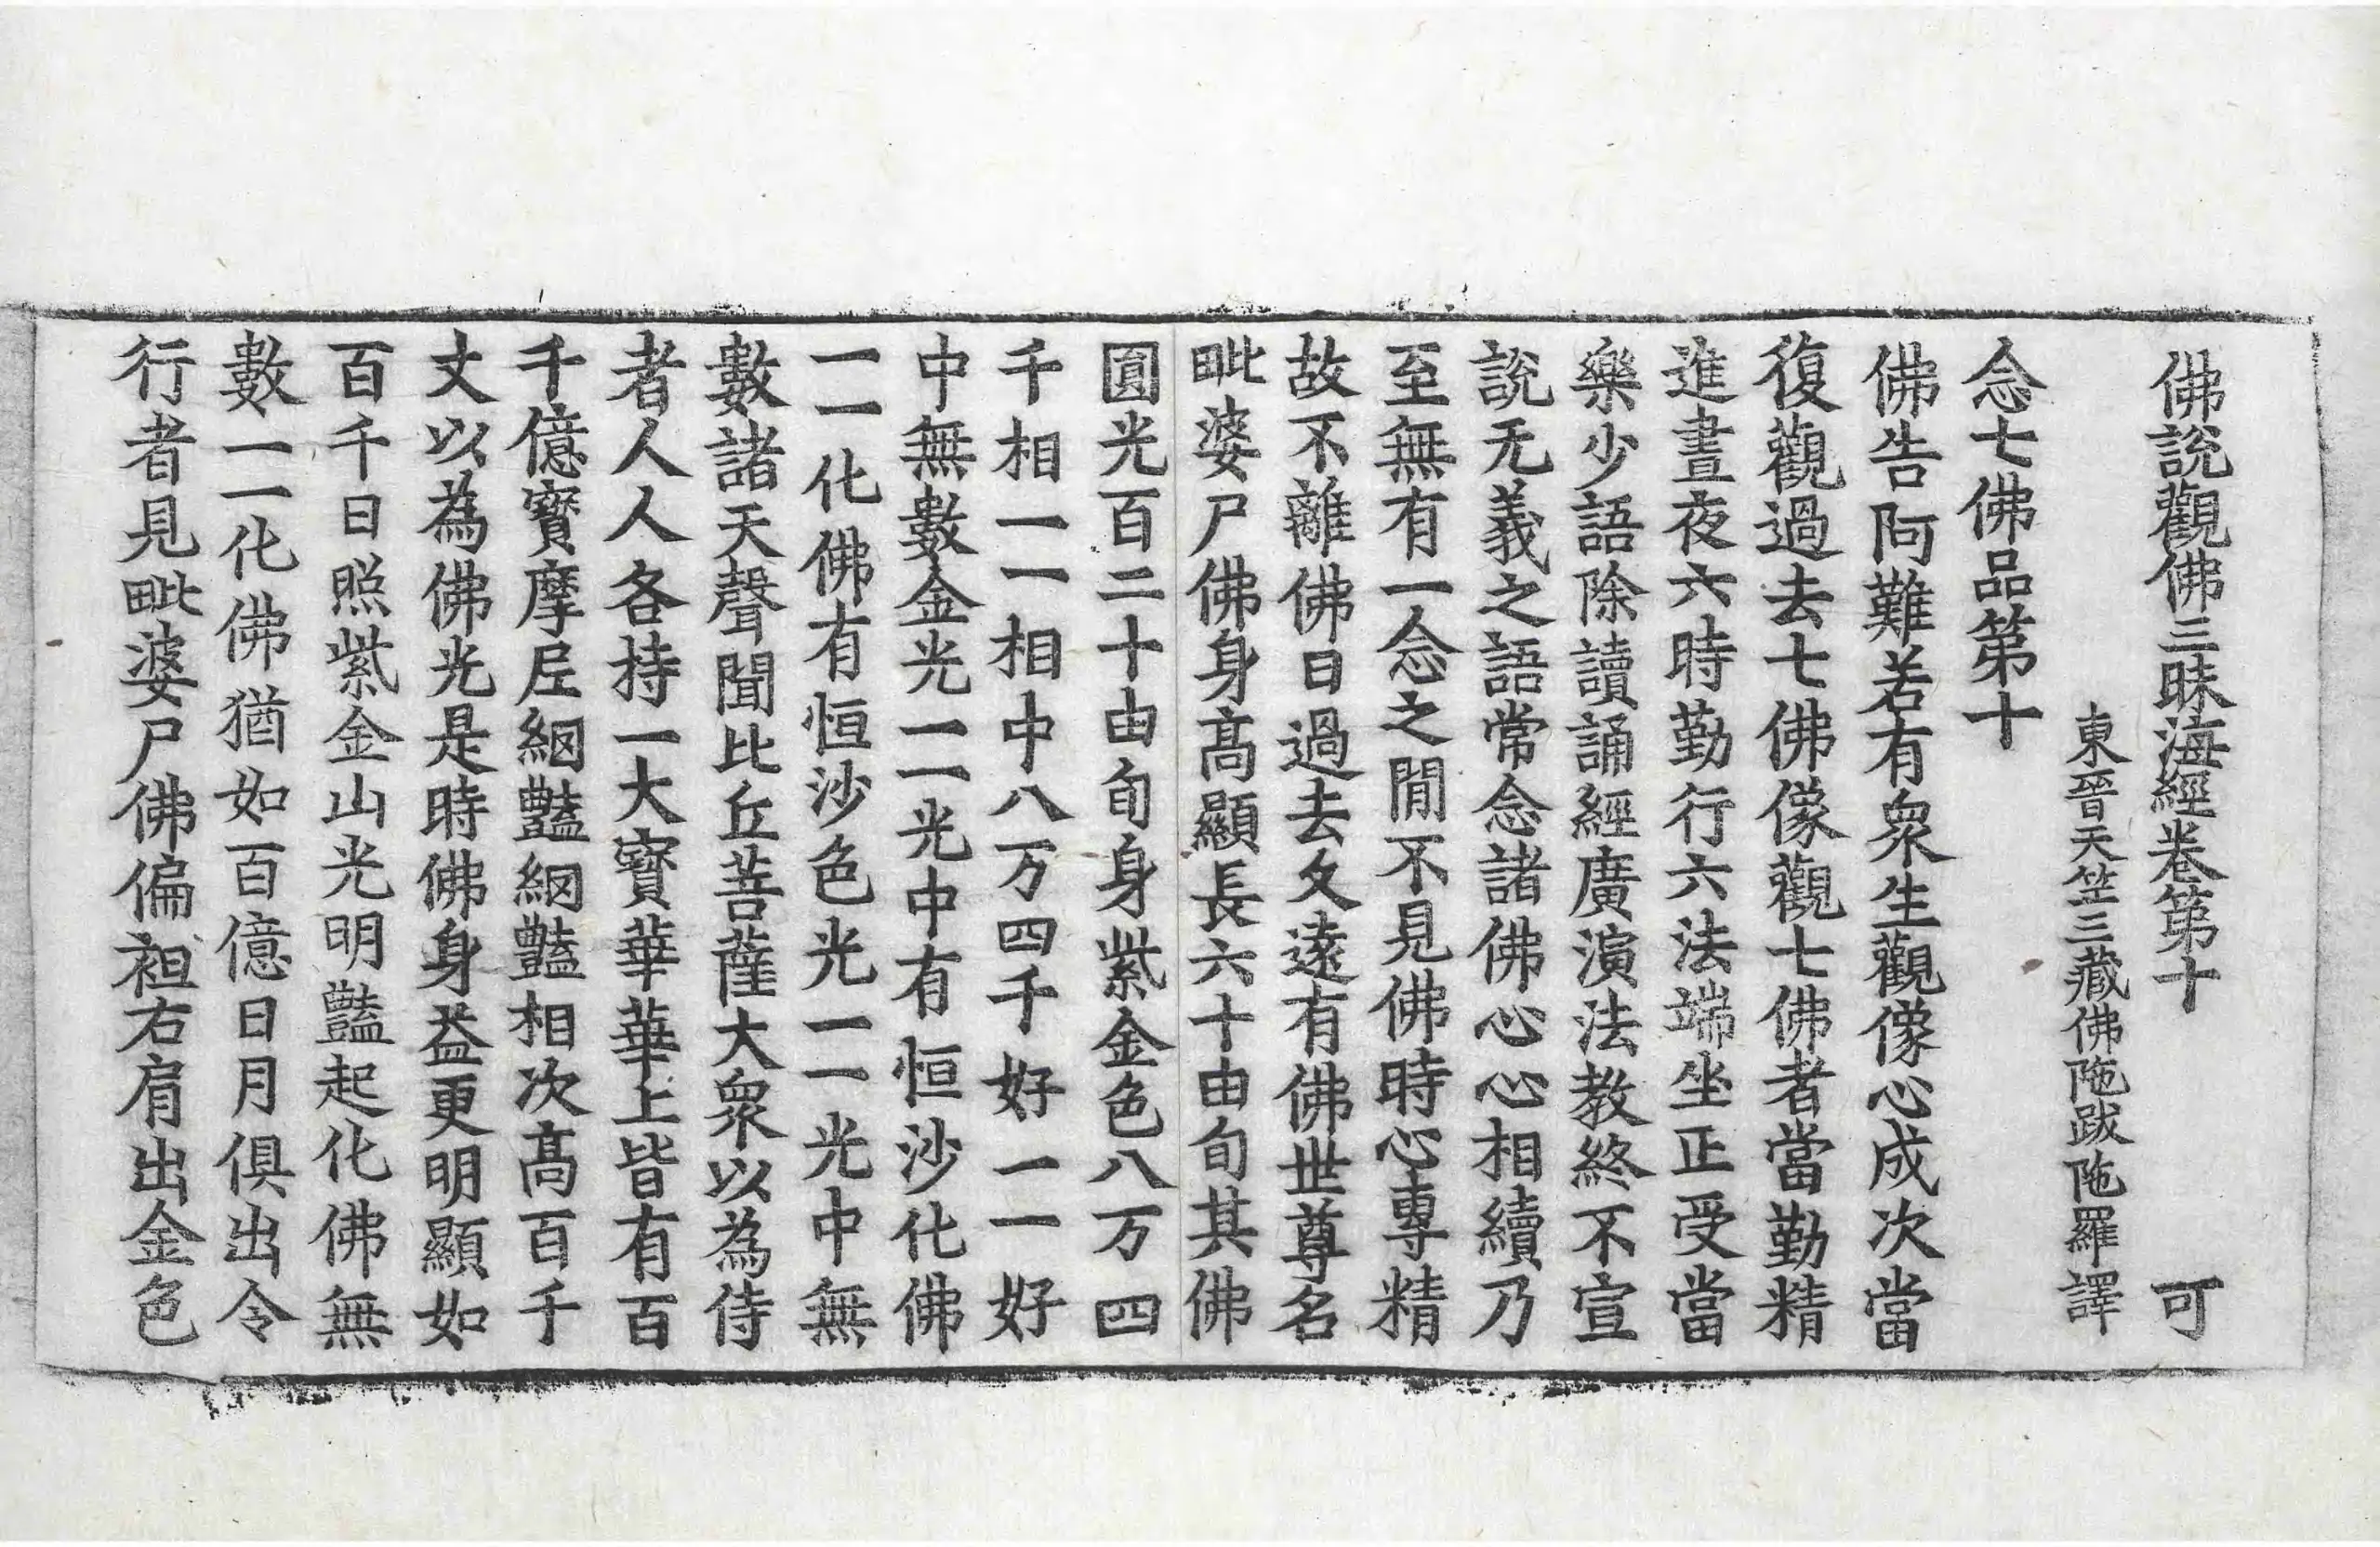 佛說觀佛三昧海經卷第十　可
東晉天竺三藏佛陁跋陁羅譯
念七佛品第十
佛告阿難若有衆生觀像心成次當
復觀過去七佛像觀七佛者當勤精
進晝夜六時勤行六法端坐正受當
樂少語除讀誦經廣演法教終不宣
說无義之語常念諸佛心心相續乃
至無有一念之閒不見佛時心專精
故不離佛日過去久遠有佛世尊名
毗婆尸佛身髙顯長六十由旬其佛
圎光百二十由旬身紫金色八万四
千相一一相中八万四千好一一好
中無數金光一一光中有恒沙化佛
一一化佛有恒沙色光一一光中無
數諸天聲聞比丘菩薩大衆以為侍
者人人各持一大寳華華上皆有百
千億寳摩尼網豔網豔相次髙百千
丈以為佛光是時佛身益更明顯如
百千日照紫金山光明豔起化佛無
數一一化佛猶如百億日月俱出令
行者見毗婆尸佛偏袒右肩出金色